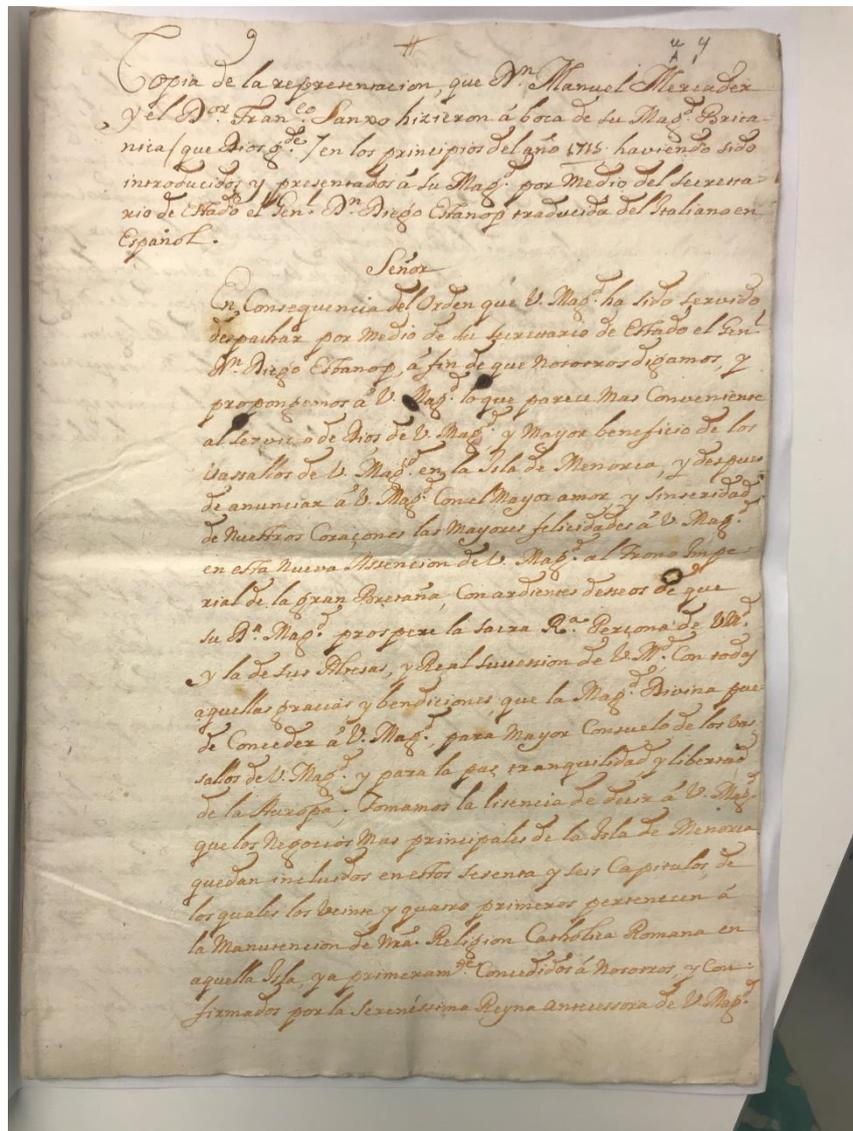 Copia de la representacion, que Dn. Manuel Mercader
y el Dor. Franco. Sanxo hizieron á boca de su Magd. Brica-
nica / que Dios gde. / en los principios del año 1715. haviendo sido
introducidos y presentados á su Magd. por Medio del secreta-
rio de Estado el Genl. Dn. Diego Estanop traducida del Italiano en
Español.
Señor
En Consequencia del Orden que V. Magd. ha sido servido
despachar por Medio de su secretario de Estado el Genl.
Dn. Diego Estanop, á fin de que Nosotros digamos, y
propongamos á V. Magd. lo que parece Mas Conveniente
al servicio de Dios, de V. Magd. y Mayor beneficio de los
Vassallos de V. Magd. en la Isla de Menorca, y despues
de anunciar á V. Magd. Con el Mayor amor y sinseridad
de Nuestros Coraçones las Mayores felicidades á V. Magd.
en esta Nueva Assencion de V. Magd. al Trono Impe-
rial de la gran Bretaña, Con ardientes deseos de que
su Da. Magd. prospere la sacra Ra. Perçona de VMd.
y la de sus Altesas, y Real sucession de V. Md. Con todas
aquellas gracias y bendiciones que la Magd. Divina pue-
de Conceder á V. Magd., para Mayor Consuelo de los vas-
sallos de V. Magd. y para la paz, tranquilidad y libertad
de la Auropa. Tomamos la lisencia de desir á V. Magd.
que los Negocios Mas principales de la Isla de Menorca
quedan incluidos en estos sesenta y seis Capitulos, de
los quales los Veinte y quatro primeros pertenecen á
la Manutencion de Nra. Religion Catholica Romana en
aquella Isla, ya primeramte. Concedidos á Nosotros, y Con-
firmados por la Sereníssima Reyna Antecessora de V. Magd.